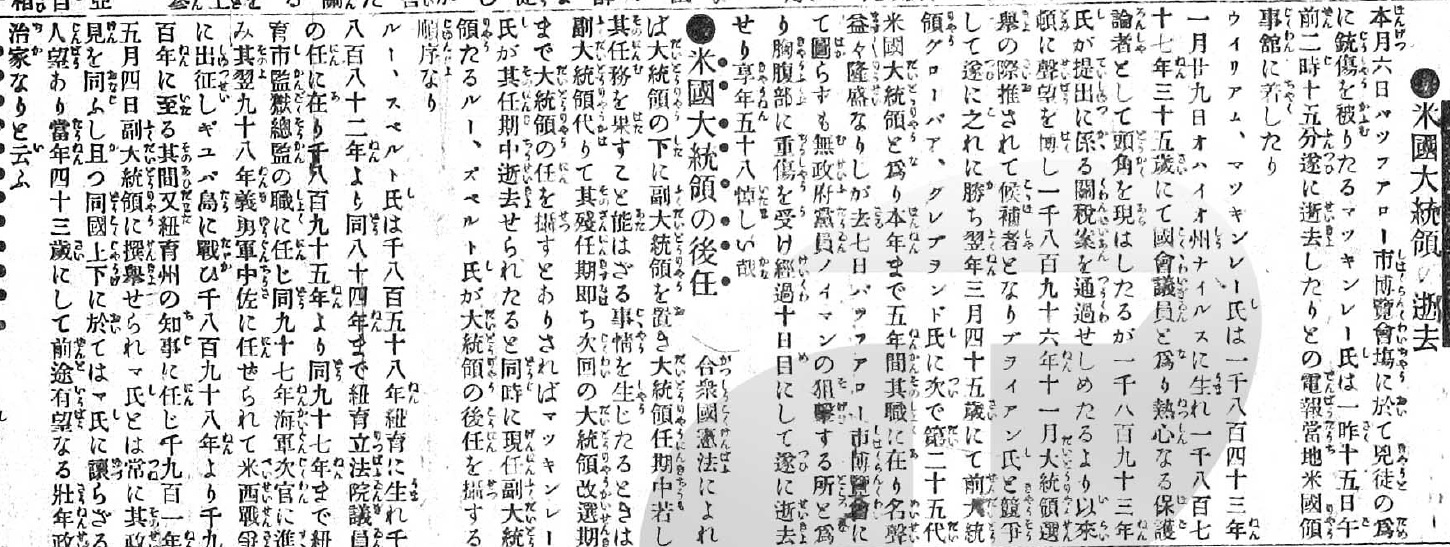 ●米國大統領の逝去
本月六日バツフアロー市博覽會塲に於て兇徒の爲
に銃傷を被りたるマツキンレー氏は一昨十五日午
前二時十五分遂に逝去したりとの電報當地米國領
事館に着したり
ウイリアム、マツキンレー氏は一千八百四十三年
一月廿九日オハイオ州ナイルスに生れ一千八百七
十七年三十五歲にて國會議員と爲り熱心なる保護
論者として頭角を現はしたるが一千八百九十三年
氏が提出に係る關稅案を通過せしめたるより以來
頓に聲望を博し一千八百九十六年十一月大統領選
擧の際推されて候補者となりブライアン氏と競爭
して遂に之れに勝ち翌年三月四十五歲にて前大統
領グローバア、クレブランド氏に次で第二十五代
米國大統領と爲り本年まで五年間其職に在り名聲
益々隆盛なりしが去七日バツフアロー市博覽會に
て圖らずも無政府黨員ノイマンの狙擊する所と爲
り胸腹部に重傷を受け經過十日目にして遂に逝去
せり享年五十八悼しい哉
●米國大統領の後任
合衆國憲法によれ
ば大統領の下に副大統領を置き大統領任期中若し
其任務を果すこと能はざる事情を生じたるときは
副大統領代りて其殘任期即ち次回の大統領改選期
まで大統領の任を攝すとありさればマツキンレー
氏が其任期中逝去せられたると同時に現任副大統
領たるルー、ズベルト氏が大統領の後任を攝する
順序なり
ルー、スベルト氏は千八百五十八年紐育に生れ千
八百八十二年より同八十四年まで紐育立法院議員
の任に在り千八百九十五年より同九十七年まで紐
育市監獄總監の職に任じ同九十七年海軍次官に進
み其翌九十八年義勇軍中佐に任せられて米西戰爭
に出征しギユバ島に戰ひ千八百九十八年より千九
百年に至る其間又紐育州の知事に任じ千九百一年
五月四日副大統領に撰擧せられマ氏とは常に其政
見を同ふし且つ同國上下に於てはマ氏に讓らざる
人望あり當年四十三歲にして前途有望なる壯年政
治家なりと云ふ